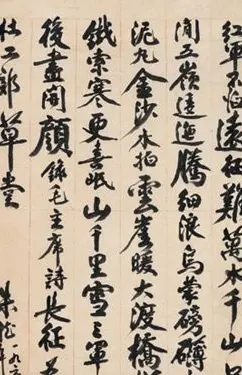 红軍不怕遠征難萬水千山只
閒五嶺逶迤騰細浪烏蒙磅礴
泥丸金沙水拍雲崖暖大渡橋
鐵索寒更喜岷山千里雪三軍
後盡開顏錄毛主席詩長征
草堂
一九